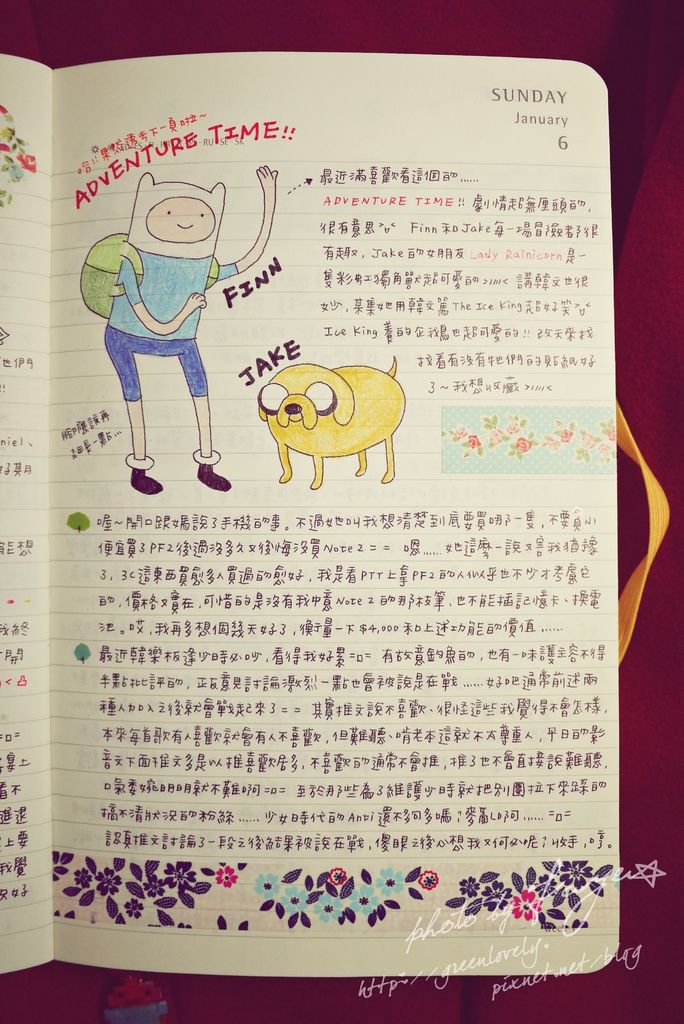 SUNDAY
January
6
哈!!果然還有下一頁啦~
ADVENTURE TIME!!
最近滿喜歡看這個的……
ADVENTURE TIME!! 劇情超無厘頭的,
很有意思 Finn 和Jake每一場冒險都很
有趣, Jake 的女朋友 Lady Rainicorn 是一
隻彩虹獨角獸超可愛的 >///< 講韓文也很
妙, 某集她用韓文罵 The Ice King 超好笑
Ice King 養的企鵝也超可愛的!! 改天來找
找看有沒有牠們的貼紙好
3~我想收藏 >///<
FINN
JAKE
腳應該再
細長一點…
喔~開口跟媽說了手機的事。不過她叫我想清楚到底要買哪一隻, 不要貪小
便宜買了PF2後過沒多久又後悔沒買Note 2 = = 嗯……她這麼一說又害我猶豫
了, 3C這東西買愈多人買過的愈好, 我是看PTT上拿PF2的人似乎也不少才考慮它
的, 價格又實在, 可惜的是沒有我中意Note 2 的那枝筆、也不能插記憶卡、換電
池。哎, 我再多想個幾天好了, 衡量一下$4,000和上述功能的價值……
最近韓樂板逢少時必吵, 看得我好累=D= 有故意釣魚的, 也有一味護主容不得
半點批評的, 正反意見討論激烈一點也會被說是在戰……好吧通常前述兩
種人加入之後就會戰起來了= = 其實推文說不喜歡、很怪這些我覺得不會怎樣,
本來每首歌有人喜歡就會有人不喜歡, 但難聽、啃老本這就不太尊重人, 平日的影
音文下面推文多是以推喜歡居多, 不喜歡的通常不會推, 推了也不會直接說難聽,
口氣委婉明明就不難啊=D= 至於那些為了維護少時就把別團拉下來踩的
搞不清狀況的粉絲……少女時代的Anti還不夠多嗎?麥亂啊……=D=
認真推文討論了一段之後結果被說在戰, 傻眼之後心想我又何必呢?收手, 哼。
photo by
http://greenlovely.
pixnet.net/blog